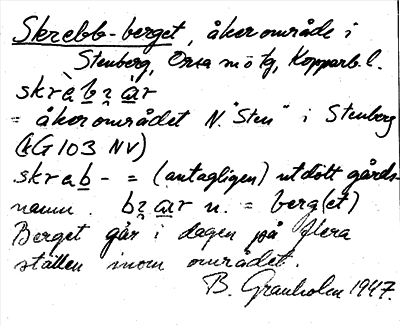 Skrebb-berget, åkerområde i
Stenberg, Orsa m o tg, Kopparb. l.
skràbz̥ar
= åkerområdet N. "Sten" i Stenberg
(kG103 NV)
skrab- = (antagligen) utdött gårds-
namn. bz̥ar n. = berg(et)
Berget går i dagen på flera
ställen inom området.
B. Granholm 1947.